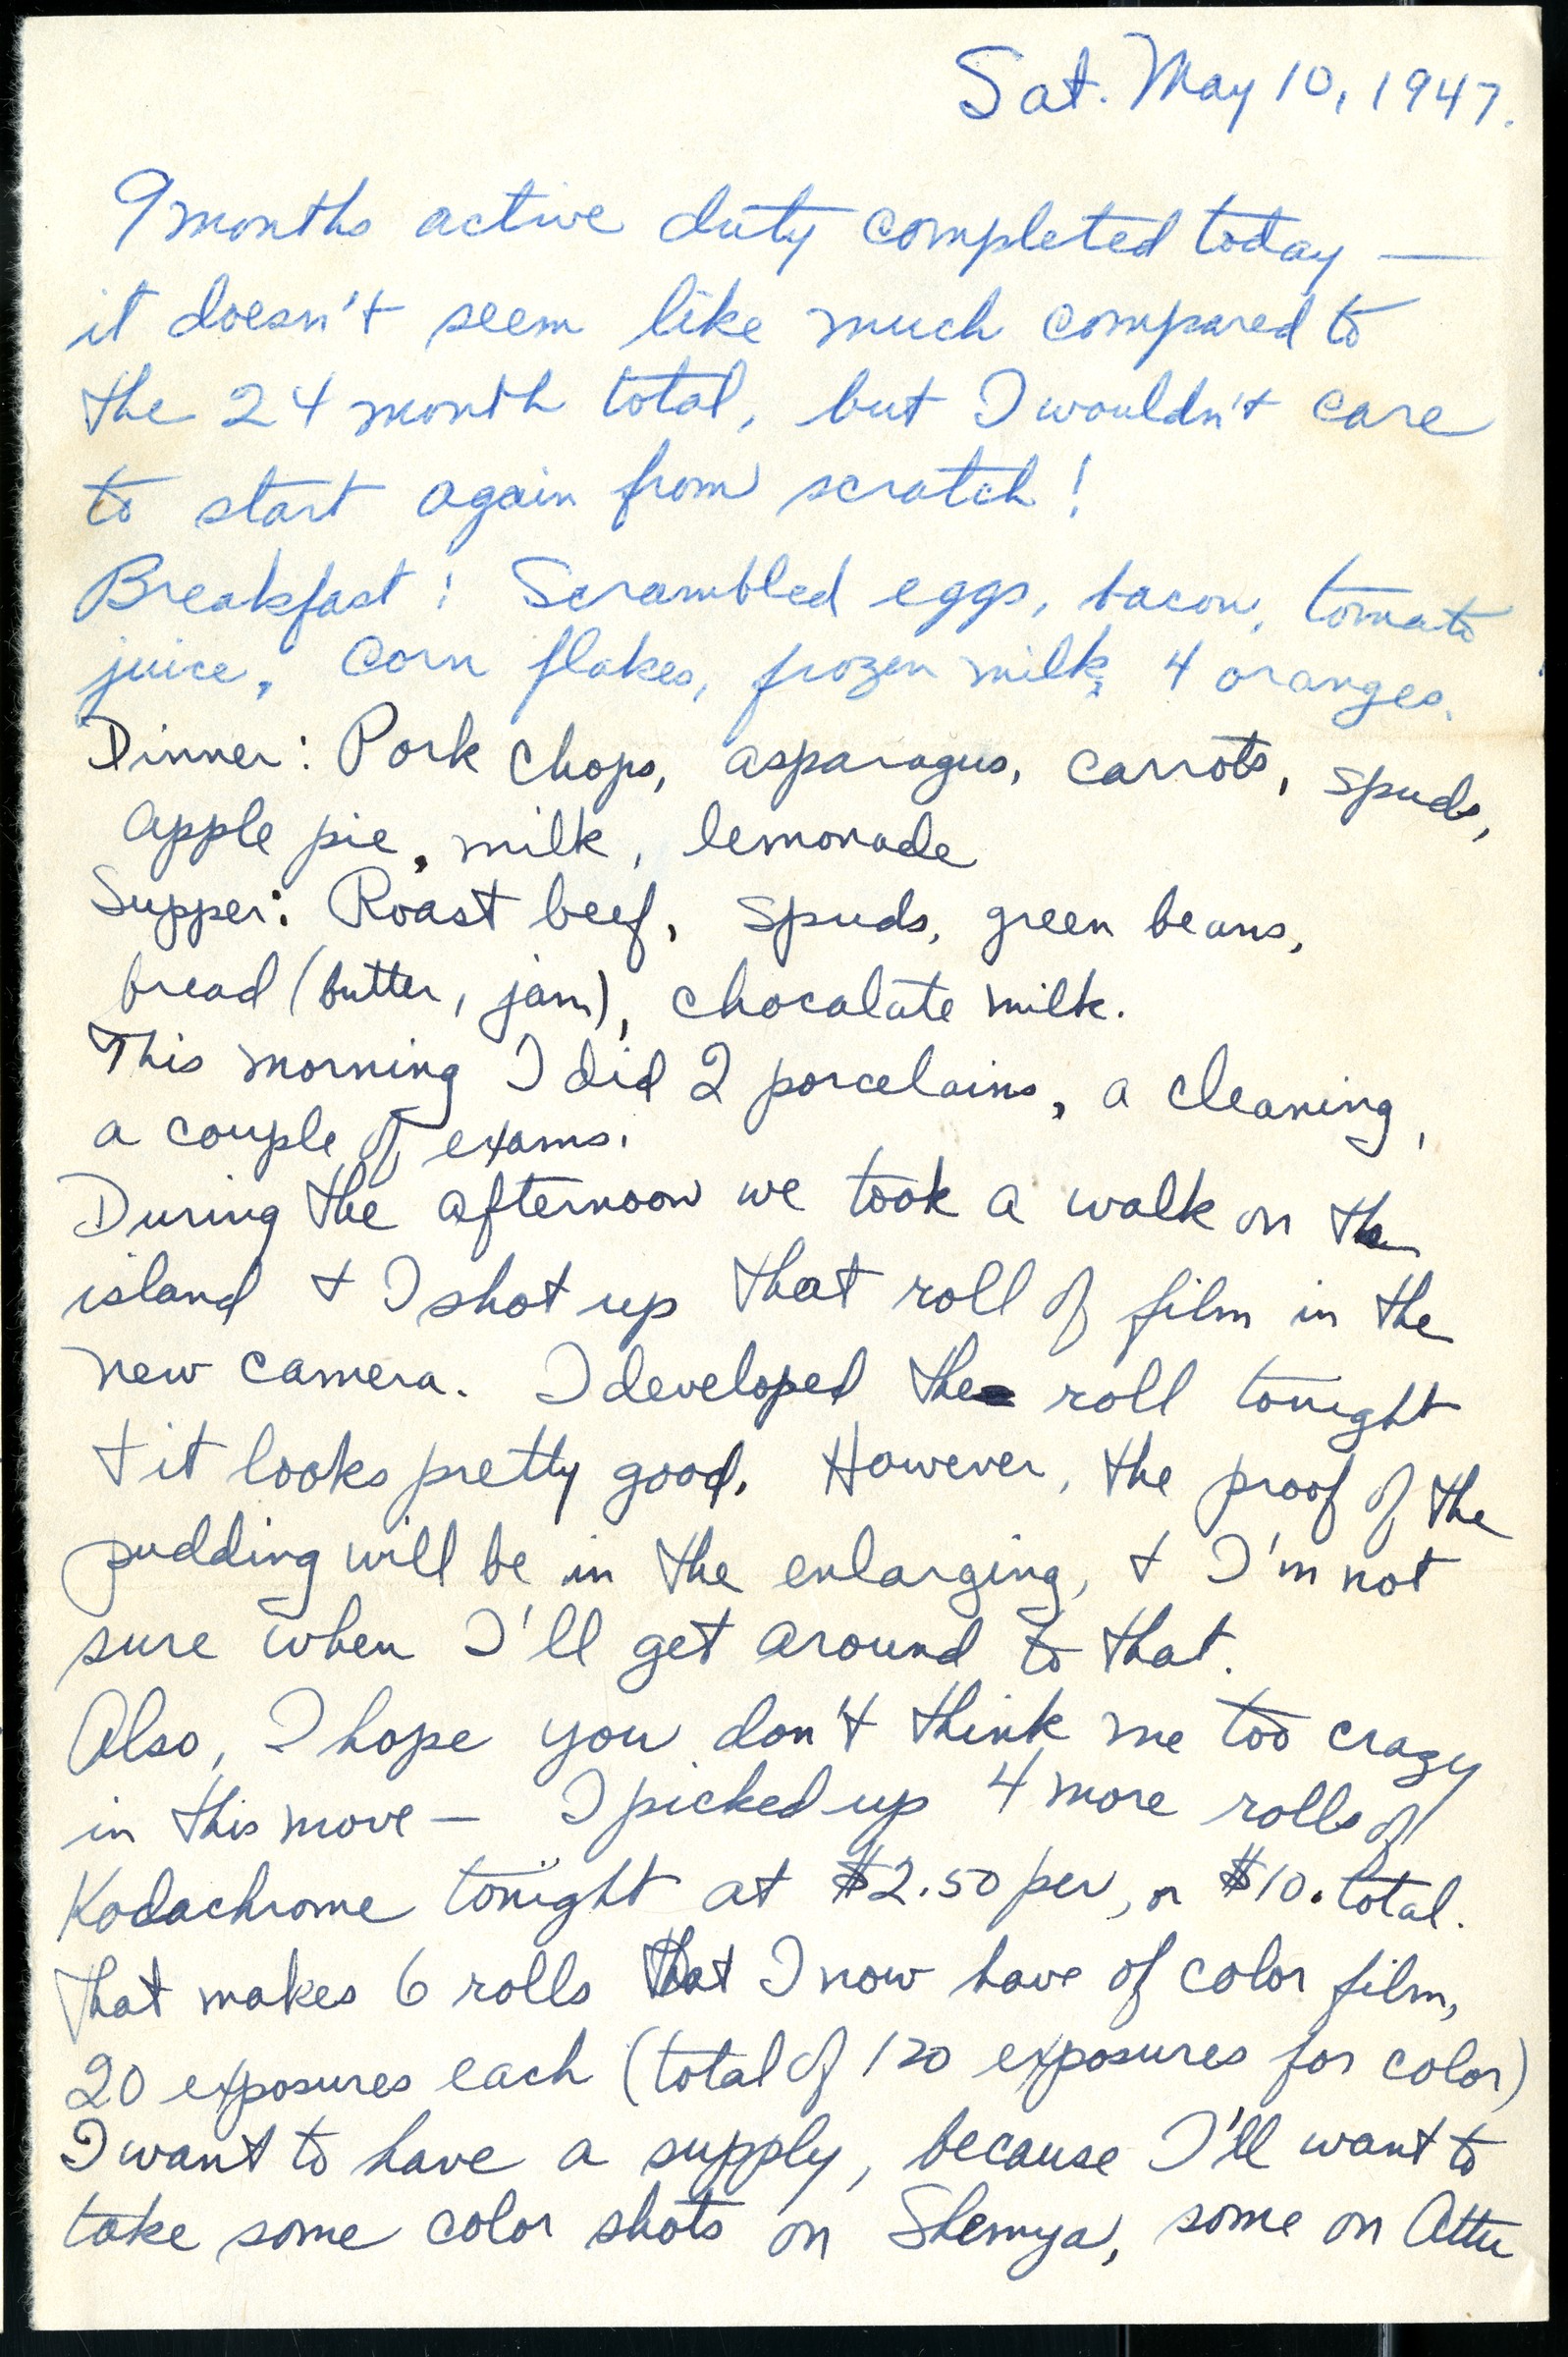 Sat. May 10, 1947.
9 months active duty completed today —
it doesn't seem like much compared to
the 24 month total, but I wouldn't care
to start again from scratch!
Breakfast: Scrambled eggs, bacon, tomato
juice, corn flakes, frozen milk, 4 oranges.
Dinner: Pork chops, asparagus, carrots, spuds,
apple pie, milk, lemonade
Supper: Roast beef, spuds, green beans,
bread (butter, jam), chocalate milk.
This morning I did 2 porcelains, a cleaning,
a couple of exams.
During the afternoon we took a walk on the
island + I shot up that roll of film in the
new camera. I developed the roll tonight
+ it looks pretty good. However, the proof of the
pudding will be in the enlarging, + I'm not
sure when I'll get around to that.
Also, I hope you don't think me too crazy
in this move — I picked up 4 more rolls of
Kodachrome tonight at $2.50 per, or $10. total.
That makes 6 rolls that I now have of color film,
20 exposures each (total of 120 exposures for color)
I want to have a supply, because I'll want to
take some color shots on Shemya, some on Attu